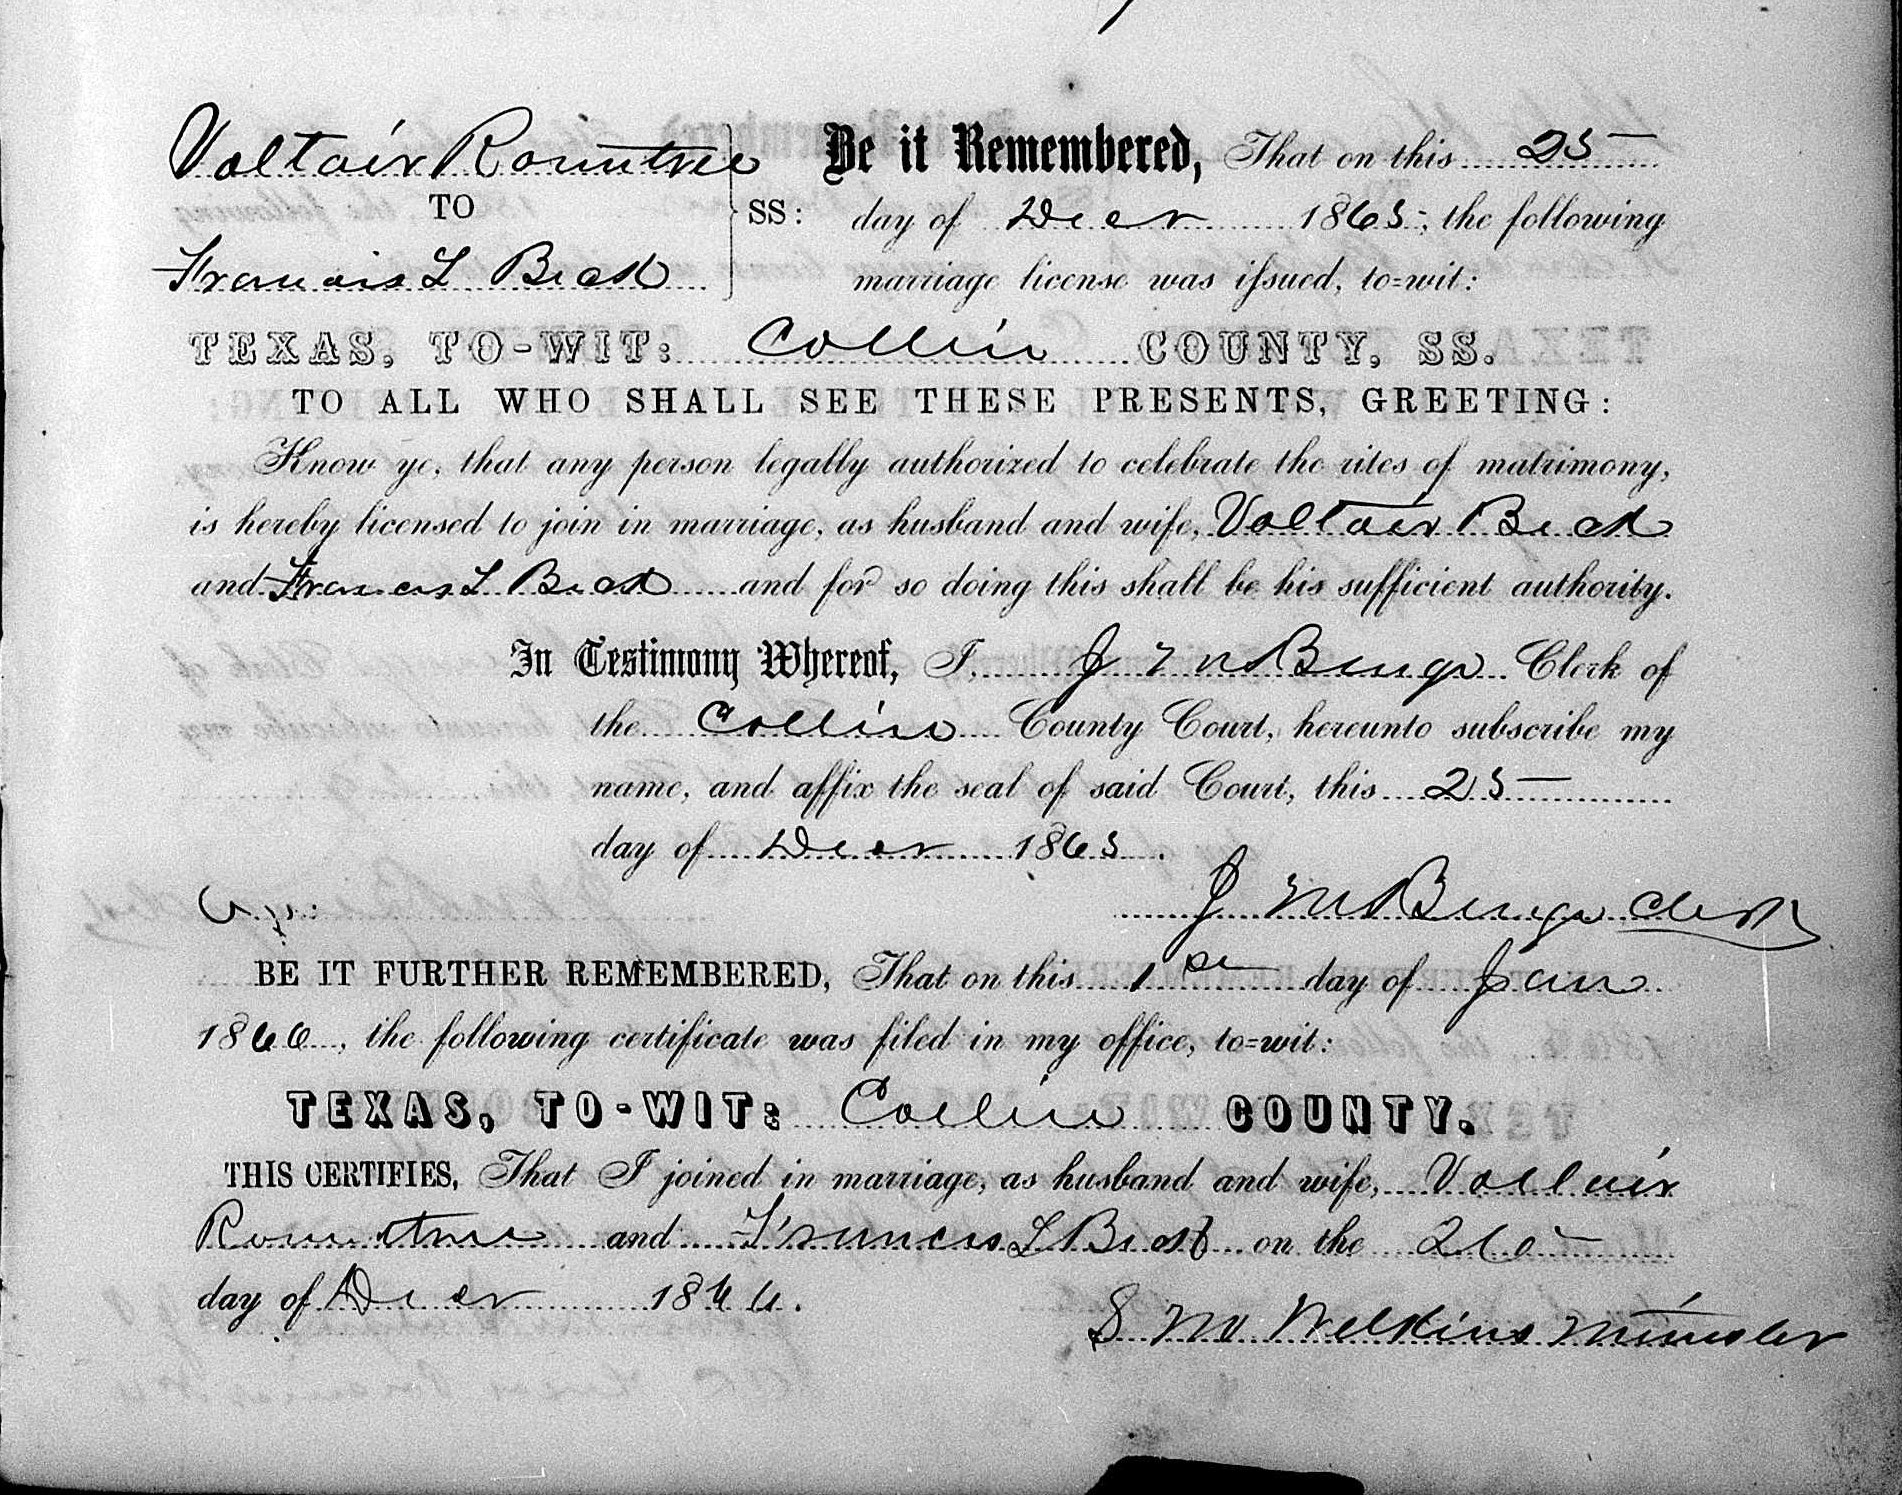 Voltair Rountree
TO
Francis L Beck
SS:
Be it Remembered, That on this 25
day of Decr 1865, the following
marriage license was issued, to=wit:
TEXAS, TO-WIT: Collin COUNTY, SS.
TO ALL WHO SHALL SEE THESE PRESENTS, GREETING:
Know ye, that any person legally authorized to celebrate the rites of matrimony,
is hereby licensed to join in marriage, as husband and wife, Voltair Beck
and Francis L Beck and for so doing this shall be his sufficient authority.
In Testimony Whereof, I, J M Benge Clerk of
the Collin County Court, hereunto subscribe my
name, and affix the seal of said Court, this 25
day of Decr 1865.
J M Benge Clerk
BE IT FURTHER REMEMBERED, That on this 1st day of Jan
1866, the following certificate was filed in my office, to=wit:
TEXAS, TO-WIT: Collin COUNTY.
THIS CERTIFIES, That I joined in marriage, as husband and wife, Voltair
Rountree and Francis L Beck on the 26
day of Decr 1866.
S M Wilkins Minister